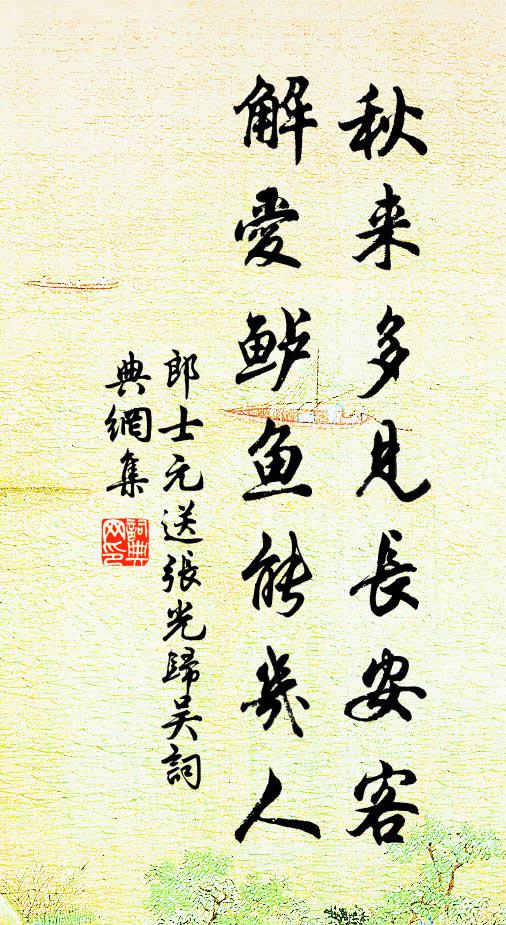 秋来多見長安客
解愛鲈魚能幾人
郎士元送張光歸吴詞
典網集
詞典网印